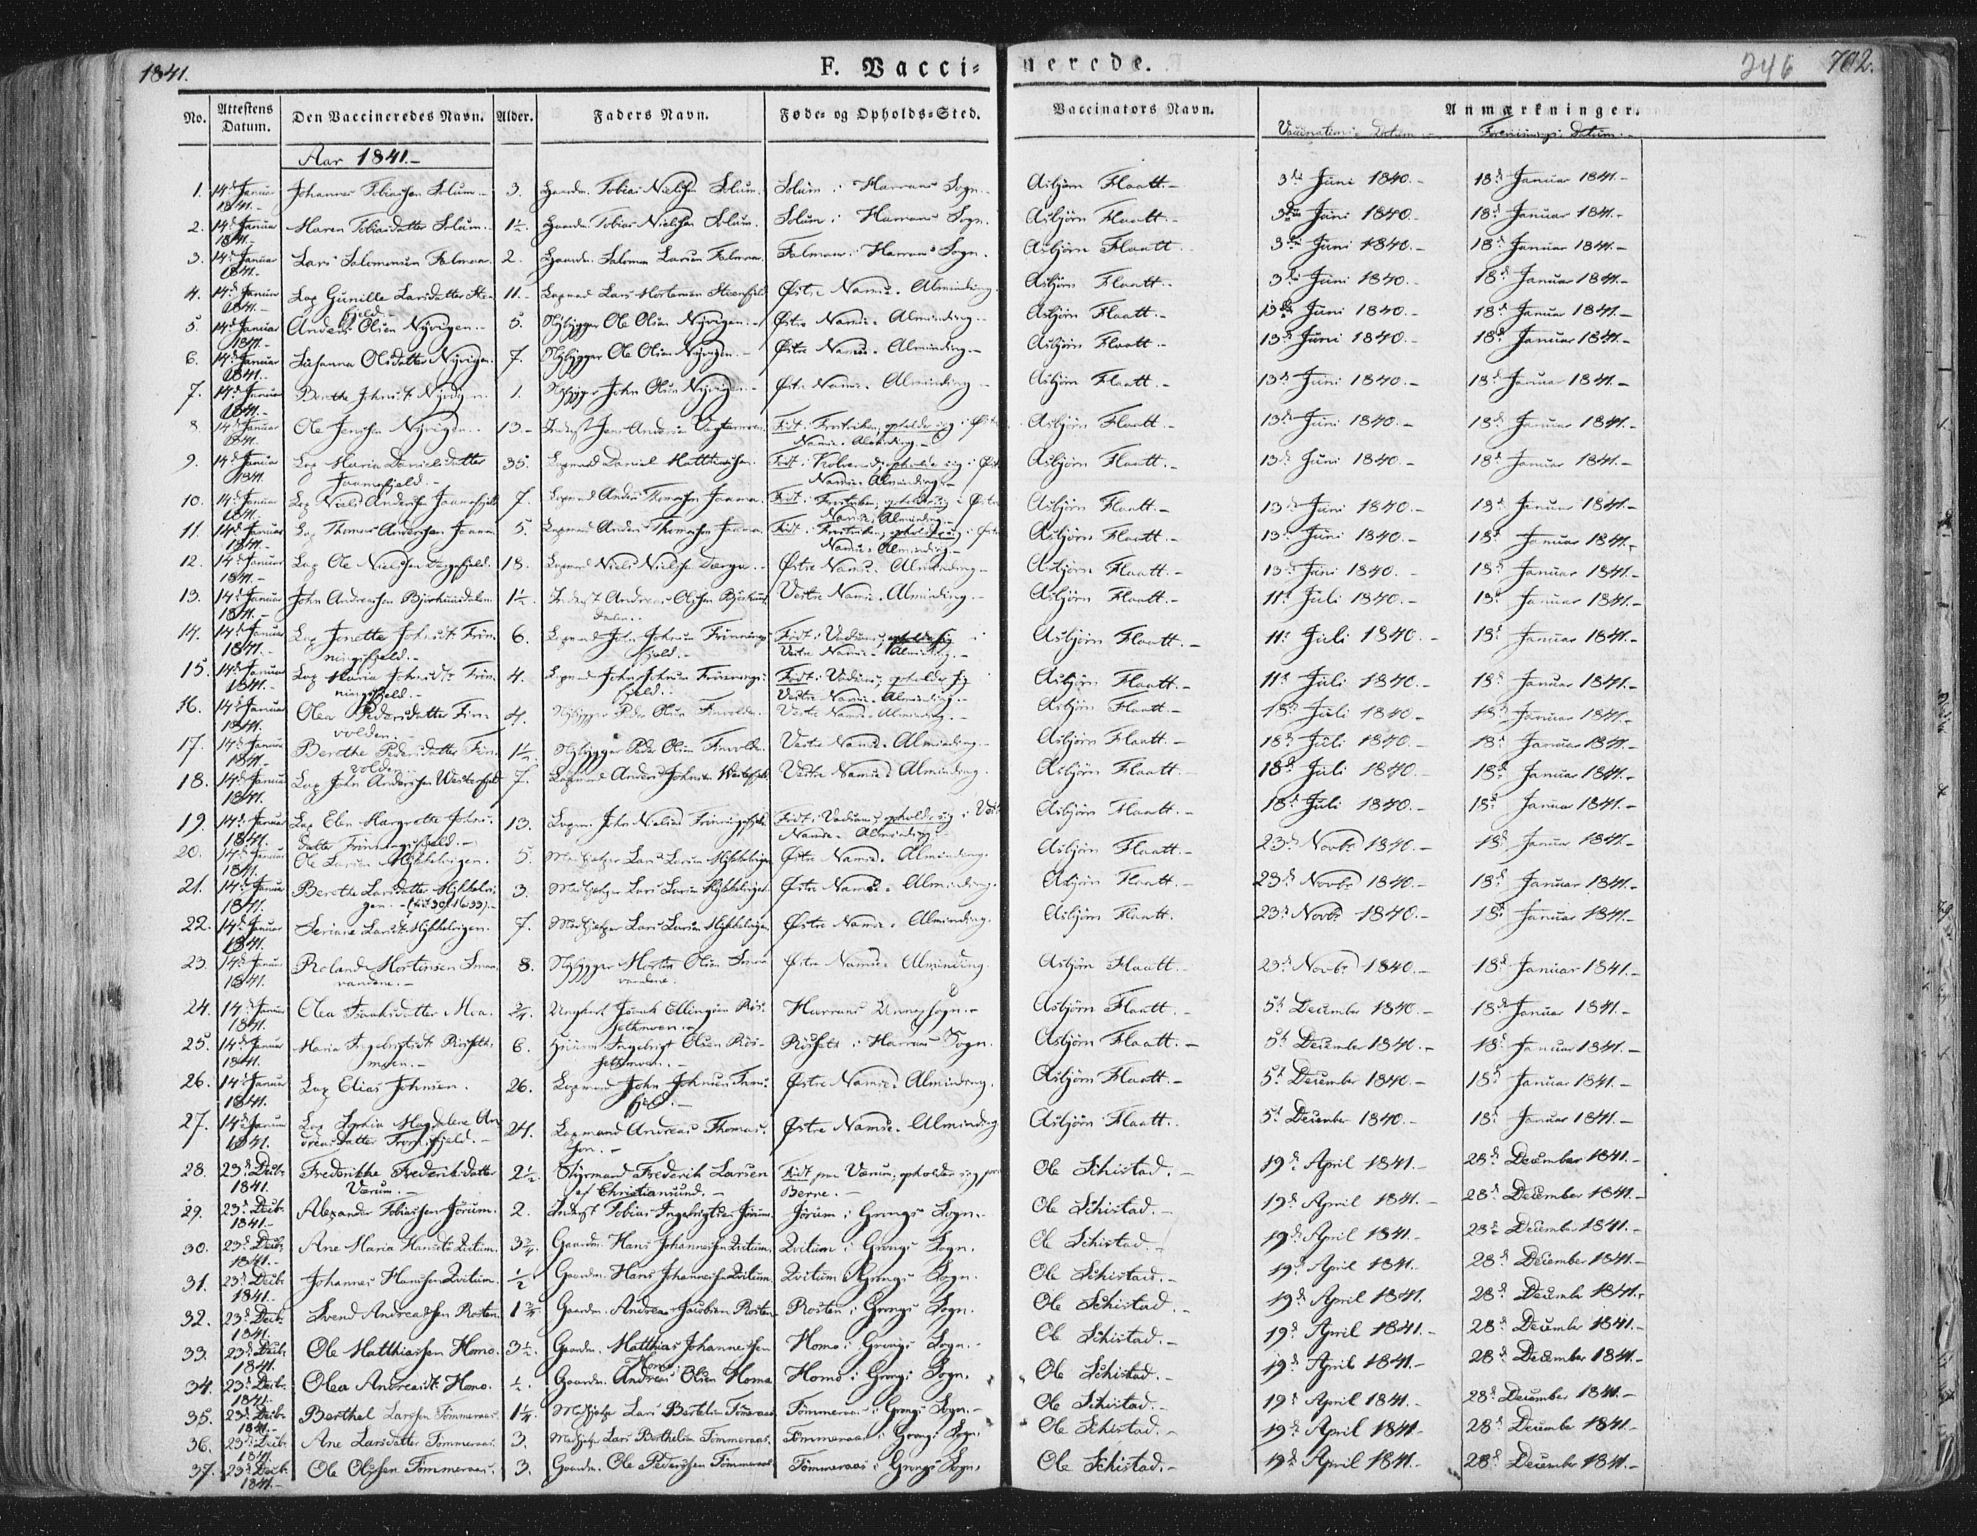 1841. F. Vaccinerede. 246 702.
No. Attestens Datum. Den Vaccineredes Navn. Alder. Faders Navn. Føde- og Opholds-Sted. Vaccinators Navn. Anmærkninger.
Vaccinations Datum.- Datum.-
Aar 1841.-
1. 14d Januar 1841.- Johannes Tobiassen Solum.- 3. Gaardm. Tobias Nielsen Solum. Solum i Harrans Sogn. Asbjörn Flaatt.- 3die Juni 1840.- 18d Januar 1841.-
2. 14d Januar 1841.- Maren Tobiasdatter Solum. 1½. Gaardm. Tobias Nielsen Solum. Solum i Harrans Sogn. Asbjörn Flaatt.- 3die Juni 1840.- 18d Januar 1841.-
3. 14d Januar 1841.- Lars Salomonsen 2. Gaardm. Salomon Larsen i Harrans Sogn. Asbjörn Flaatt. 3die Juni 1840.- 18d Januar 1841.-
4. 14d Januar 1841.- Lap Gunille Larsdatter Steenfjeld.- 11.- Lapmand Lars Mortensen Steenfjeld Østre Namss. Alminding. Asbjörn Flaatt.- 3die Juni 1840.- 18d Januar 1841.-
5. 14d Januar 1841.- Anders Olsen Nyvigen.- 5. Nybygger Ole Olsen Nyvigen.- Østre Namss. Alminding.- Asbjörn Flaatt.- 13d Juni 1840.- 18d Januar 1841.-
6. 14d Januar 1841.- Susanna Olsdatter Nyvigen. 7. Nybygger Ole Olsen Nyvigen.- Østre Namss. Alminding.- Asbjörn Flaatt.- 13d Juni 1840.- 18d Januar 1841.-
7. 14d Januar 1841.- Berthe Johnsdt Nyvigen. 1. Nybygger John Olsen Nyvigen.- Østre Namss. Alminding.- Asbjörn Flaatt.- 13d Juni 1840.- 18d Januar 1841.-
8. 14d Januar 1841. Ole Jensen Nyvigen. 13.- Inderst Jens Andersen Født i opholder sig i Østre Namss. Alminding.- Asbjörn Flaatt.- 13d Juni 1840.- 18d Januar 1841.-
9. 14d Januar 1841. Lap Maria Danielsdatter Jaamafjeld.- 35. Lapmand Daniel Matthiassen. Født i opholder sig i Østre Namss. Alminding.- Asbjörn Flaatt.- 13d Juni 1840.- 18d Januar 1841.-
10. 14d Januar 1841. Lap Niels Andersen Jaamafjeld 7. Lapmand Anders Thomassen Jaama. Født i opholder sig i Østre Namss. Alminding.- Asbjörn Flaatt.- 13d Juni 1840.- 18d Januar 1841.-
11. 14d Januar 1841.- Lap Thomas Andersen Jaama. 5. Lapmand Anders Thomassen Jaama. Født i opholder sig i Østre Namss. Alminding.- Asbjörn Flaatt.- 13d Juni 1840.- 18d Januar 1841.-
12. 14d Januar 1841.- Lap Ole Nielsen 18. Lapmand Niels Nielsen Østre Namss. Alminding.- Asbjörn Flaatt.- 13d Juni 1840.- 18d Januar 1841.-
13. 14d Januar 1841.- John Andreassen 1½. Inderst Andreas Olsen Vestre Namss. Alminding.- Asbjörn Flaatt.- 11d Juli 1840.- 18d Januar 1841.-
14. 14d Januar 1841.- Lap Jonette Johnsdt Frinningsfjeld.- 6. Lapmand John Johnsen Frinningsfjeld.- Født i opholder sig i Vestre Namss. Alminding.- Asbjörn Flaatt.- 11d Juli 1840.- 18d Januar 1841.-
15. 14d Januar 1841.- Lap Maria Johnsdt Frinningsfjeld.- 4. Lapmand John Johnsen Frinningsfjeld.- Født i opholder sig i Vestre Namss. Alminding.- Asbjörn Flaatt.- 11d Juli 1840.- 18d Januar 1841.-
16. 14d Januar 1841.- Olea Pedersdatter Finvolden.- 4. Nybygger Peder Olsen Finvolden. Vestre Namss. Alminding.- Asbjörn Flaatt.- 18d Juli 1840.- 18d Januar 1841.-
17. 14d Januar 1841.- Berethe Pedersdatter Finvolden. 1½. Nybygger Peder Olsen Finvolden. Vestre Namss. Alminding.- Asbjörn Flaatt.- 18d Juli 1840.- 18d Januar 1841.-
18. 14d Januar 1841. Lap John Andersen Westerfjeld 7. Lapmand Anders Johnsen Westerfjeld Vestre Namss. Alminding. Asbjörn Flaatt.- 18d Juli 1840.- 18d Januar 1841.-
19. 14d Januar 1841. Lap Elen Margrethe Johnsdatter Frinningsfjeld.- 13. Lapm. John Nielsen Frinningsfjeld Født i opholder sig i Vest Namss. Alminding.- Asbjörn Flaatt.- 18d Juli 1840.- 18d Januar 1841.-
20. 14d Januar 1841. Ole Larsen Mikkelvigen. 5. Medhjelper Lars Larsen Mikkelvigen Østre Namss. Alminding. Asbjörn Flaatt.- 23d Novbr 1840.- 18d Januar 1841.-
21. 14d Januar 1841. Berethe Larsdatter Mikkelvigen.- 3. Medhjelper Lars Larsen Mikkelvigen Østre Namss. Alminding. Asbjörn Flaatt.- 23d Novbr 1840.- 18d Januar 1841.-
22. 14d Januar 1841. Seriane Larsdt Mikkelvigen. 7. Medhjelper Lars Larsen Mikkelvigen Østre Namss. Alminding. Asbjörn Flaatt. 23d Novbr 1840.- 18d Januar 1841.-
23. 14d Januar 1841. Roland Mortensen 8. Nybygger Morten Olsen Østre Namss. Alminding. Asbjörn Flaatt.- 23d Novbr 1840.- 18d Januar 1841.-
24. 14d Januar 1841. Olea Isaksdatter Moa. ¾. Ungkarl Isak Ellingsen Harrans Annexsogn.- Asbjörn Flaatt.- 5d December 1840.- 18d Januar 1841.-
25. 14d Januar 1841. Maria Ingebrigtsdt 6. Huusm. Ingebrigt Olsen i Harrans Sogn. Asbjörn Flaatt.- 5d December 1840.- 18d Januar 1841.-
26. 14d Januar 1841. Lap Elias Johnsen. 26. Lapmand John Johnsen Østre Namss. Alminding. Asbjörn Flaatt.- 5d December 1840.- 18d Januar 1841.-
27. 14d Januar 1841. Lap Sophia Magdalene Andreasdatter 24. Lapmand Andreas Thomassen.- Østre Namss. Alminding Asbjörn Flaatt. 5d December 1840.- 18d Januar 1841.-
28. 23d Decbr 1841. Frederikke Frederiksdatter Værum.- 2½. Styrmand Frederik Larsen af Christiansund.- Født paa Værum, opholder sig paa Berre.- Ole Schistad.- 19d April 1841.- 28d December 1841.-
29. 23d Decbr 1841.- Alexander Tobiassen Jörum. 2. Inderst Tobias Ingebrigtsen Jörum. Jörum i Grongs Sogn. Ole Schistad.- 19d April 1841.- 28d December 1841.-
30. 23d Decbr 1841.- Ane Maria Hansdt Qvitum. 3¾. Gaardm. Hans Johannessen Qvitum. Qvitum i Grongs Sogn. Ole Schistad.- 19d April 1841.- 28d December 1841.-
31. 23d Decbr 1841. Johannes Hanssen Qvitum. ½ Gaardm. Hans Johannessen Qvitum. Qvitum i Grongs Sogn. Ole Schistad.- 19d April 1841. 28d December 1841.-
32. 23d Decbr 1841. Svend Andreassen Rosten. 1¾ Gaardm. Andreas Jacobsen Rosten Rosten i Grongs Sogn. Ole Schistad.- 19d April 1841. 28d December 1841.
33. 23d Decbr 1841. Ole Matthiassen Homo. 3½. Gaardm. Matthias Johannessen Homo. Homo i Grongs Sogn. Ole Schistad.- 19d April 1841.- 28d December 1841.-
34. 23d Decbr 1841. Olea Andreasdt Homo. ½. Gaardm. Andreas Olsen Homo Homo i Grongs Sogn. Ole Schistad.- 19d April 1841.- 28d December 1841.-
35. 23d Decbr 1841.- Berthel Larssen Tömmeraas. 1¼. Medhjelper Lars Berthelsen Tömmeraas Tömmeraas i Grongs Sogn.- Ole Schistad.- 19d April 1841.- 28d December 1841.-
36. 23d Decbr 1841. Ane Larsdatter Tömmeraas. 3. Medhjelper Lars Berthelsen Tömmeraas. Tömmeraas i Grongs Sogn. Ole Schistad.- 19d April 1841 28d December 1841.-
37. 23d Decbr 1841.- Ole Olssen Tömmeraas. 3. Gaardm. Ole Pederssen Tömmeraas Tömmeraas i Grongs Sogn. Ole Schistad.- 19d April 1841.- 28d December 1841.-